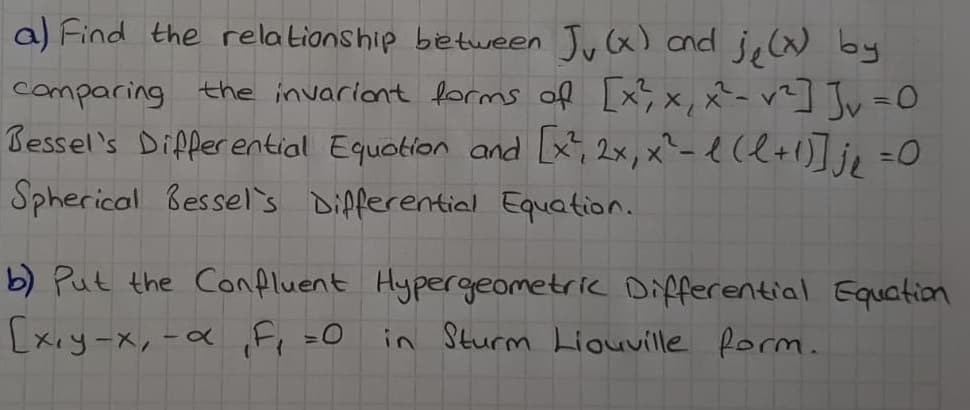 a) Find the relationship between Jᵥ(x) and jℓ(x) by
comparing the invariant forms of [x², x, x²-v²] Jᵥ=0
Bessel's Differential Equation and [x², 2x, x²-ℓ(ℓ+1)] jℓ=0
Spherical Bessel's Differential Equation.
b) Put the Confluent Hypergeometric Differential Equation
[x, y-x, -α ₁F₁ =0 in Sturm Liouville form.